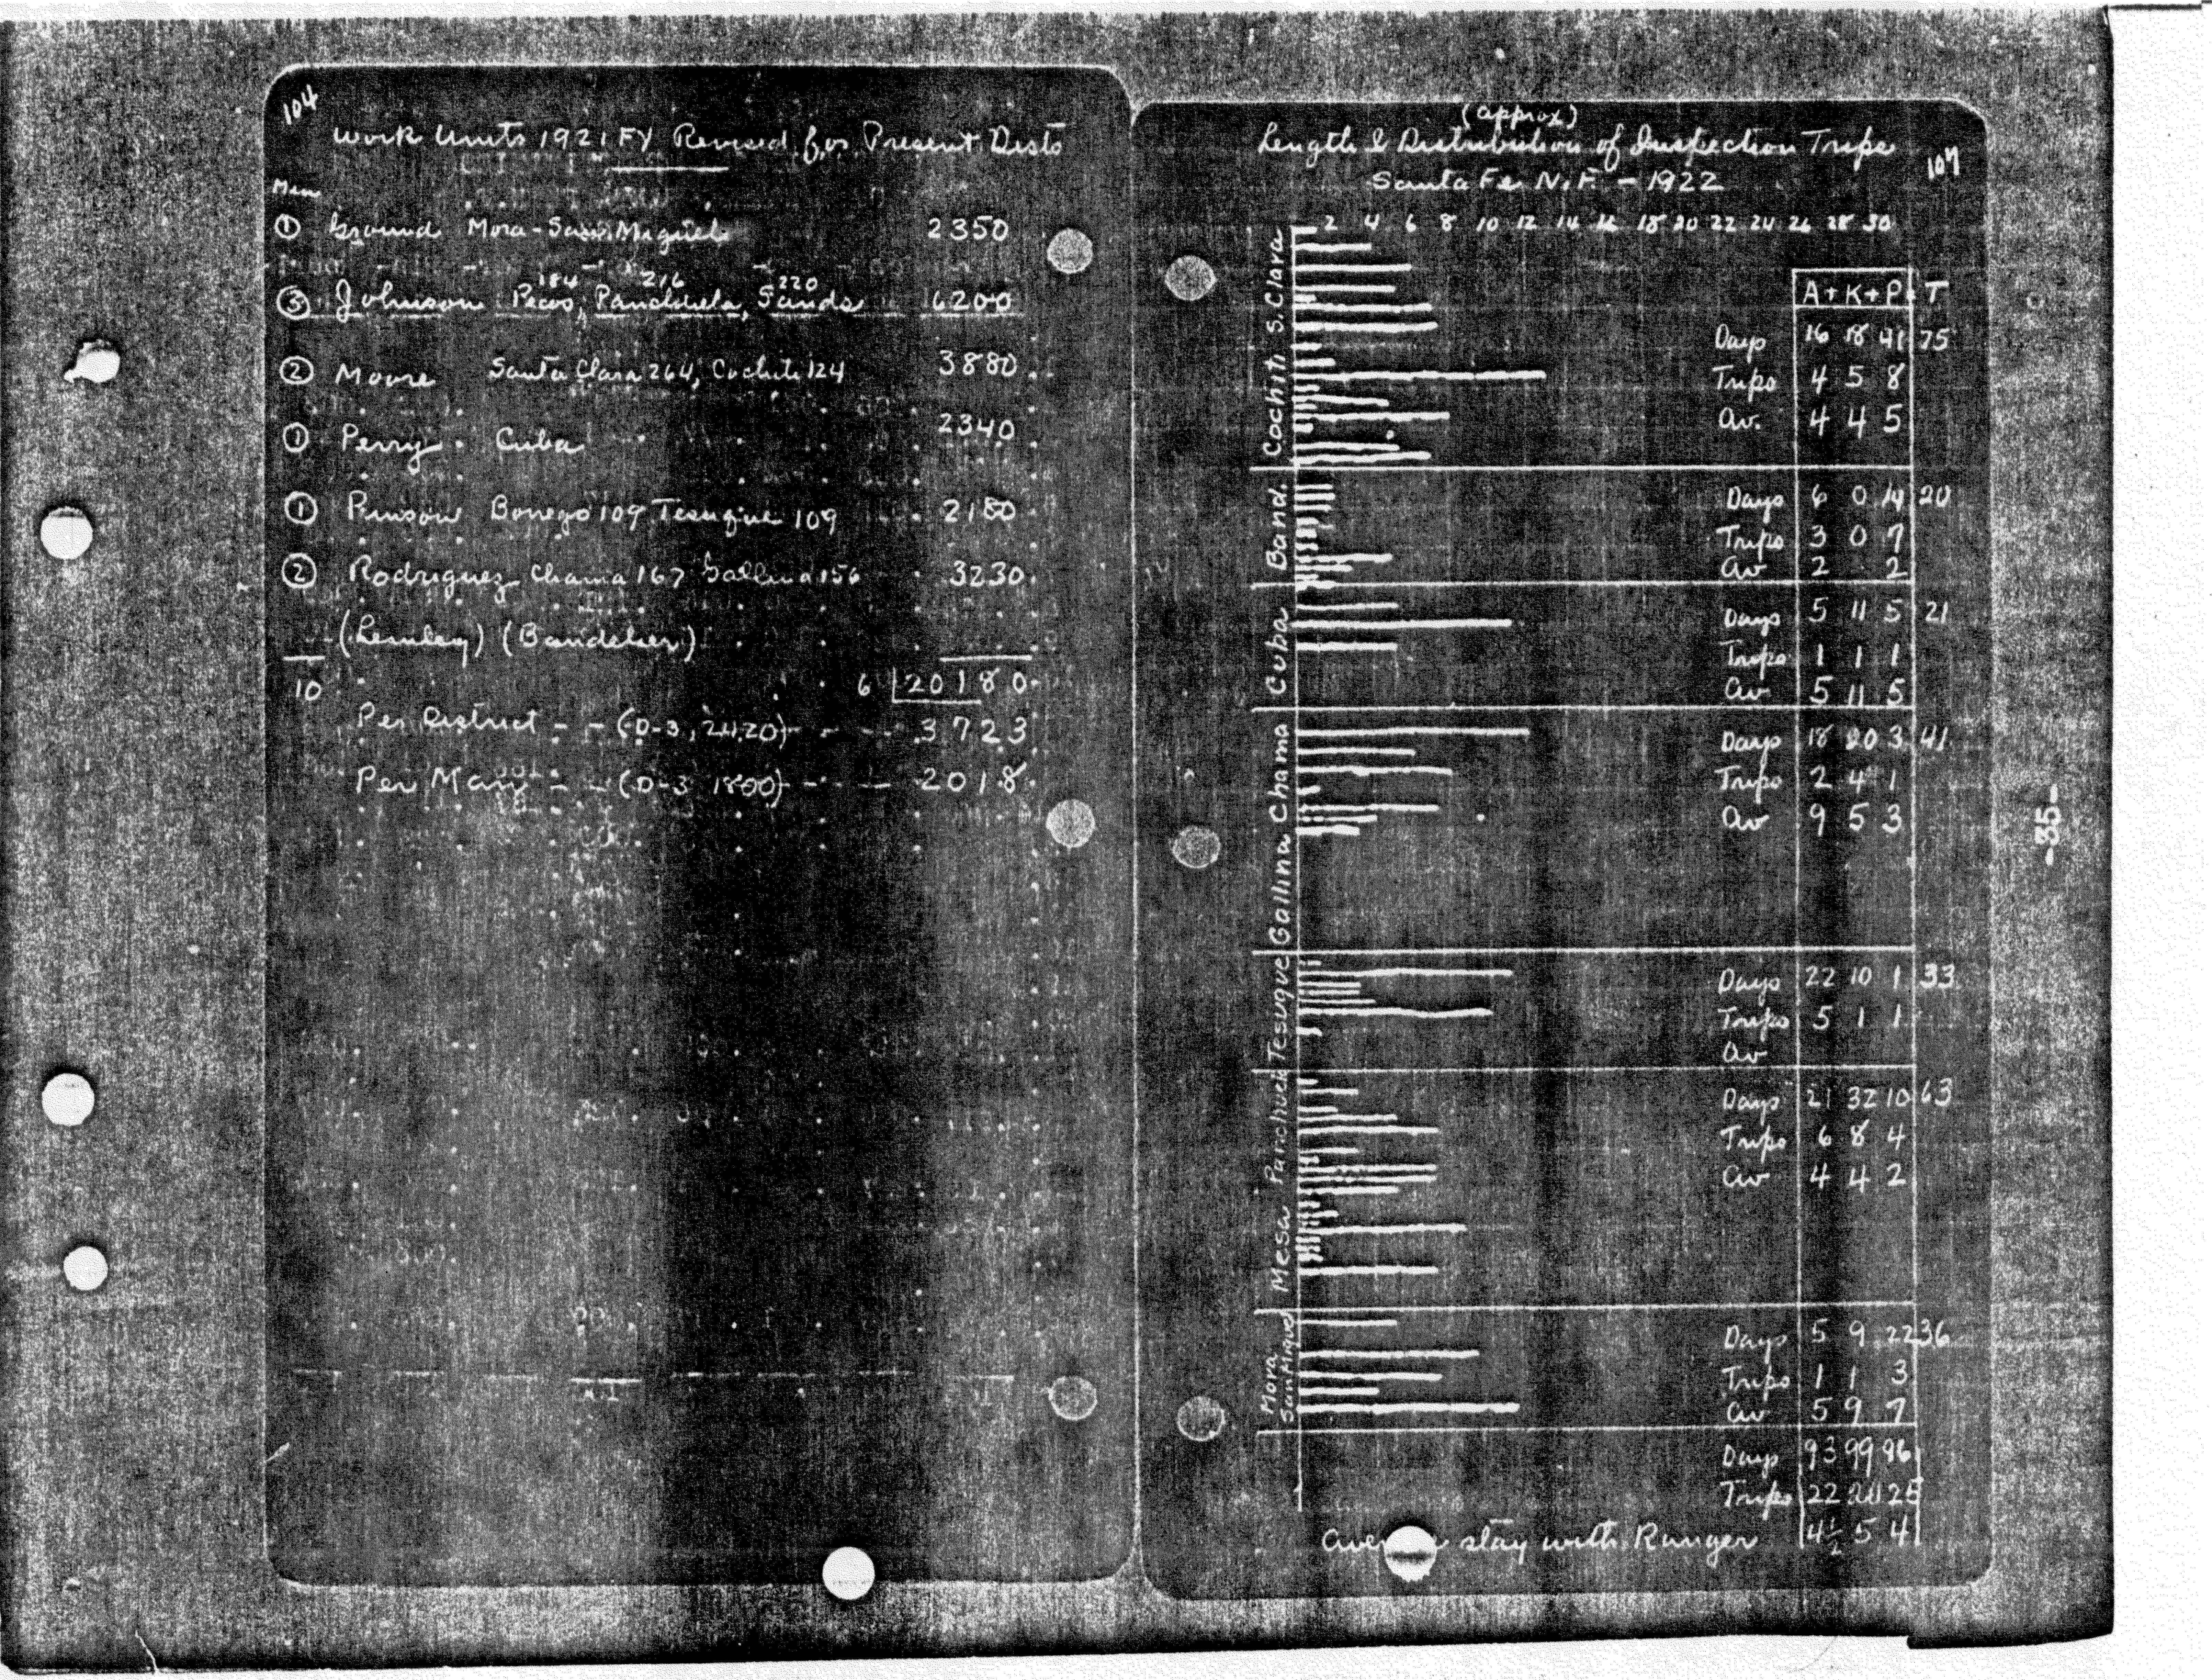 104
Work Units 1921 FY Revised for Present Dists
Men
① Ground Mora-San Miguel 2350
184 216 220
③ Johnson Pecos, Panchuela, Sands 6200
② Moore Santa Clara 264, Cochiti 124 3880
① Perry Cuba 2340
① Pinson Borrego 109 Tesuque 109 2180
② Rodriguez Chama 167 Gallina 156 3230
(Bandelier)
10 6 20180
Per District - - (D-3, 2420) - - 3723
Per Man - - (D-3 1800) - - 2018
(approx)
Length & Distribution of Inspection Trips
107
Santa Fe N.F. - 1922
2 4 6 8 10 12 14 16 18 20 22 24 26 28 30
A + K + P T
Cochiti S. Clara
Days 16 18 41 75
Trips 4 5 8
Av. 4 4 5
Band.
Days 6 0 14 20
Trips 3 0 7
Av 2 2
Cuba
Days 5 11 5 21
Trips 1 1 1
Av 5 11 5
Gallina Chama
Days 18 20 3 41
Trips 2 4 1
Av 9 5 3
Tesuque
Days 22 10 1 33
Trips 5 1 1
Av
Mesa
Days 21 32 10 63
Trips 6 8 4
Av 4 4 2
Mora
San Miguel
Days 5 9 22 36
Trips 1 1 3
Av 5 9 7
Days 93 99 96
Trips 22 20 25
stay with Ranger 4½ 5 4
-35-